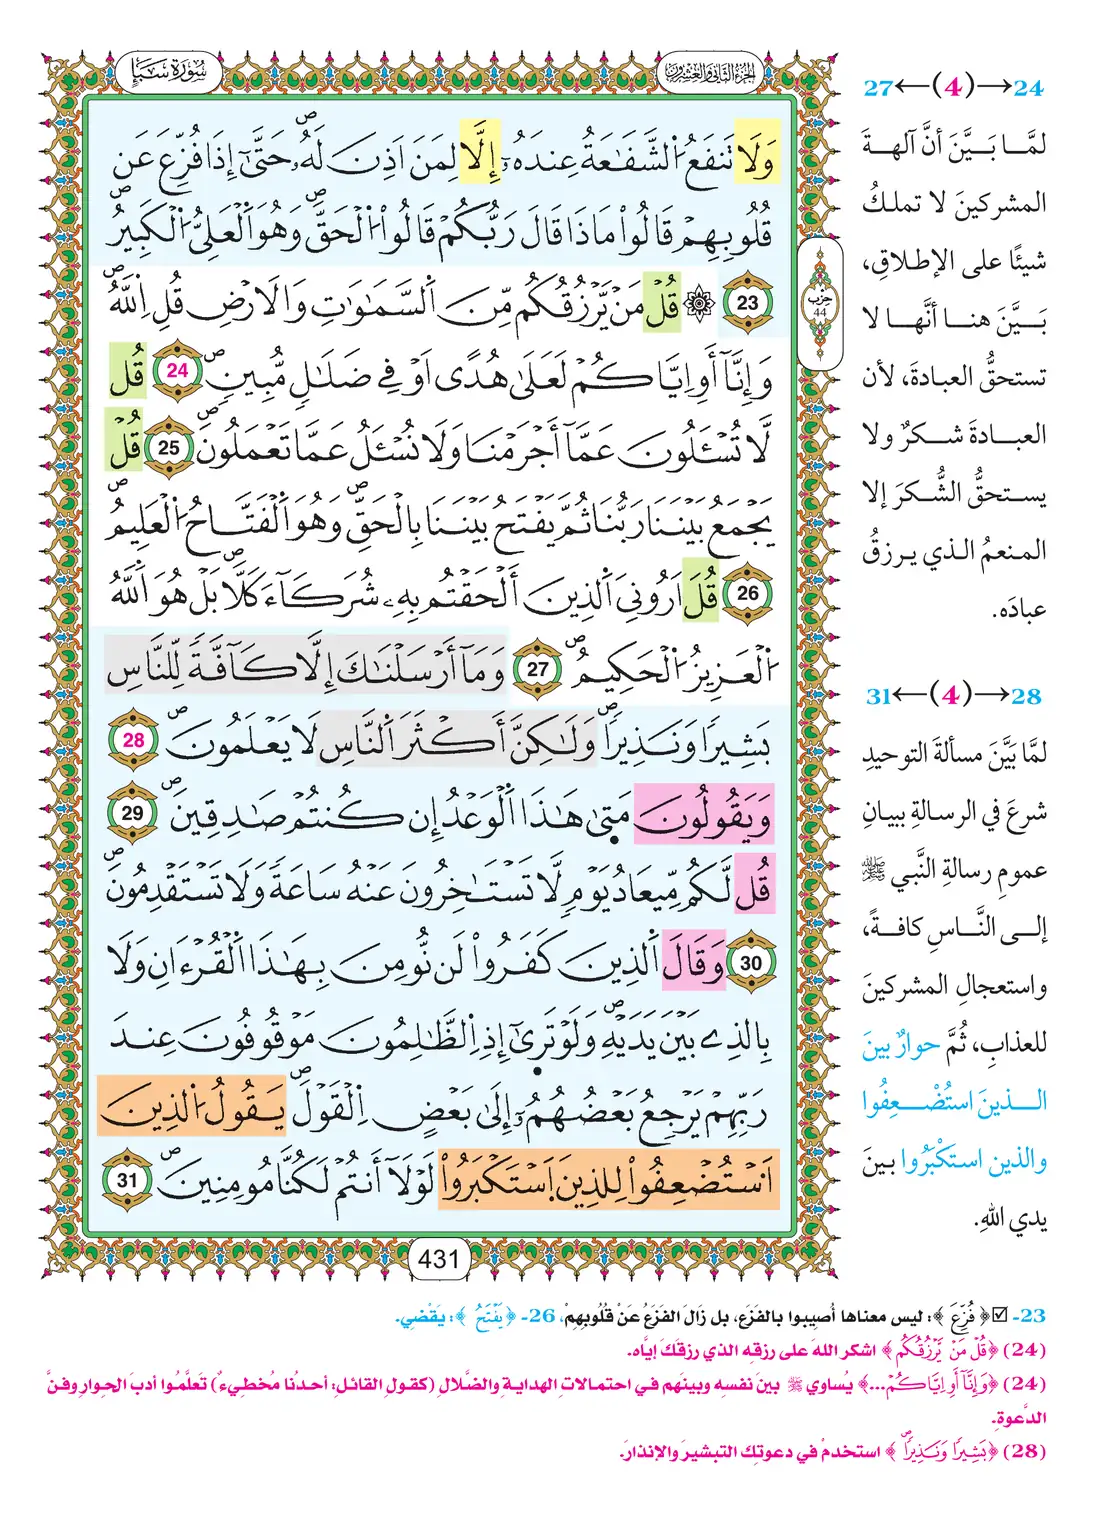 سُورَةُ سَبَإٍ
الجزء الثاني والعشرون
وَلَا تَنفَعُ اُلشَّفَٰعَةُ عِندَهُۥٓ إِلَّا لِمَنَ اَذِنَ لَهُۥۖ حَتَّىٰٓ إِذَا فُزِّعَ عَن
قُلُوبِهِمْ قَالُواْ مَاذَا قَالَ رَبُّكُمْ قَالُواْ اُلْحَقَّۖ وَهُوَ اَلْعَلِيُّ اُلْكَبِيرُۖ
23 ۞ قُلْ مَنْ يَّرْزُقُكُم مِّنَ اَلسَّمَٰوَٰتِ وَالَارْضِۖ قُلِ اِللَّهُۖ
وَإِنَّآ أَوِ اِيَّاكُمْ لَعَلَىٰ هُدًى اَوْ فِي ضَلَٰلٖ مُّبِينٖۖ 24 قُل
لَّا تُسْـَٔلُونَ عَمَّآ أَجْرَمْنَا وَلَا نُسْـَٔلُ عَمَّا تَعْمَلُونَۖ 25 قُلْ
يَجْمَعُ بَيْنَنَا رَبُّنَا ثُمَّ يَفْتَحُ بَيْنَنَا بِالْحَقِّۖ وَهُوَ اَلْفَتَّاحُ اُلْعَلِيمُۖ
26 قُلَ اَرُونِيَ اَلذِينَ أَلْحَقْتُم بِهِۦ شُرَكَآءَۖ كَلَّا بَلْ هُوَ اَللَّهُ
اُلْعَزِيزُ اُلْحَكِيمُۖ 27 وَمَآ أَرْسَلْنَٰكَ إِلَّا كَآفَّةٗ لِّلنَّاسِ
بَشِيرٗا وَنَذِيرٗاۖ وَلَٰكِنَّ أَكْثَرَ اَلنَّاسِ لَا يَعْلَمُونَۖ 28
وَيَقُولُونَ مَتَىٰ هَٰذَا اَلْوَعْدُ إِن كُنتُمْ صَٰدِقِينَۖ 29
قُل لَّكُم مِّيعَادُ يَوْمٖ لَّا تَسْتَـٰٔخِرُونَ عَنْهُ سَاعَةٗ وَلَا تَسْتَقْدِمُونَۖ
30 وَقَالَ اَلذِينَ كَفَرُواْ لَن نُّومِنَ بِهَٰذَا اَلْقُرْءَانِ وَلَا
بِالذِے بَيْنَ يَدَيْهِۖ وَلَوْ تَرَىٰٓ إِذِ اِلظَّٰلِمُونَ مَوْقُوفُونَ عِندَ
رَبِّهِمْ يَرْجِعُ بَعْضُهُمُۥٓ إِلَىٰ بَعْضٍ اِلْقَوْلَۖ يَقُولُ اُلذِينَ
اَسْتُضْعِفُواْ لِلذِينَ اَسْتَكْبَرُواْ لَوْلَآ أَنتُمْ لَكُنَّا مُومِنِينَۖ 31
431
حزب
44
24→(4)←27
لمَّا بَيَّنَ أنَّ آلهةَ
المشركينَ لا تملكُ
شيئًا على الإطلاقِ،
بَيَّنَ هنا أنَّها لا
تستحقُّ العبادةَ، لأن
العبادةَ شكرٌ ولا
يستحقُّ الشُّكرَ إلا
المنعمُ الذي يرزقُ
عبادَه.
28→(4)←31
لمَّا بَيَّنَ مسألةَ التوحيدِ
شرعَ في الرسالةِ ببيانِ
عمومِ رسالةِ النَّبي ﷺ
إلى النَّاسِ كافةً،
واستعجالِ المشركينَ
للعذابِ، ثُمَّ حوارٌ بينَ
الذينَ استُضْعِفُوا
والذين استكْبَرُوا بينَ
يدي اللهِ.
23- ☑﴿فُزِّعَ﴾: ليس معناها أُصِيبوا بالفَزَعِ، بل زَالَ الفَزَعُ عَنْ قُلُوبِهِمْ، 26- ﴿يَفْتَحُ﴾: يَقْضِي.
(24) ﴿قُلْ مَنْ يَّرْزُقُكُم﴾ اشكر اللهَ على رزقِه الذي رزقَكَ إيَّاه.
(24) ﴿وَإِنَّآ أَوِ اِيَّاكُمْ...﴾ يُساوي ﷺ بينَ نفسِه وبينَهم في احتمالاتِ الهدايةِ والضَّلالِ (كقولِ القائلِ: أحدُنا مُخطِيءٌ) تَعلَّمُوا أدبَ الحوارِ وفنَّ
الدَّعوةِ.
(28) ﴿بَشِيرٗا وَنَذِيرٗاۖ﴾ استخدمْ في دعوتِك التبشيرَ والإنذارَ.